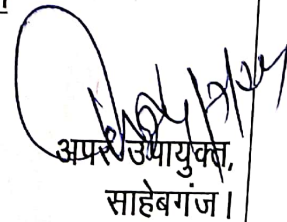 अपर उपायुक्त,
साहेबगंज।